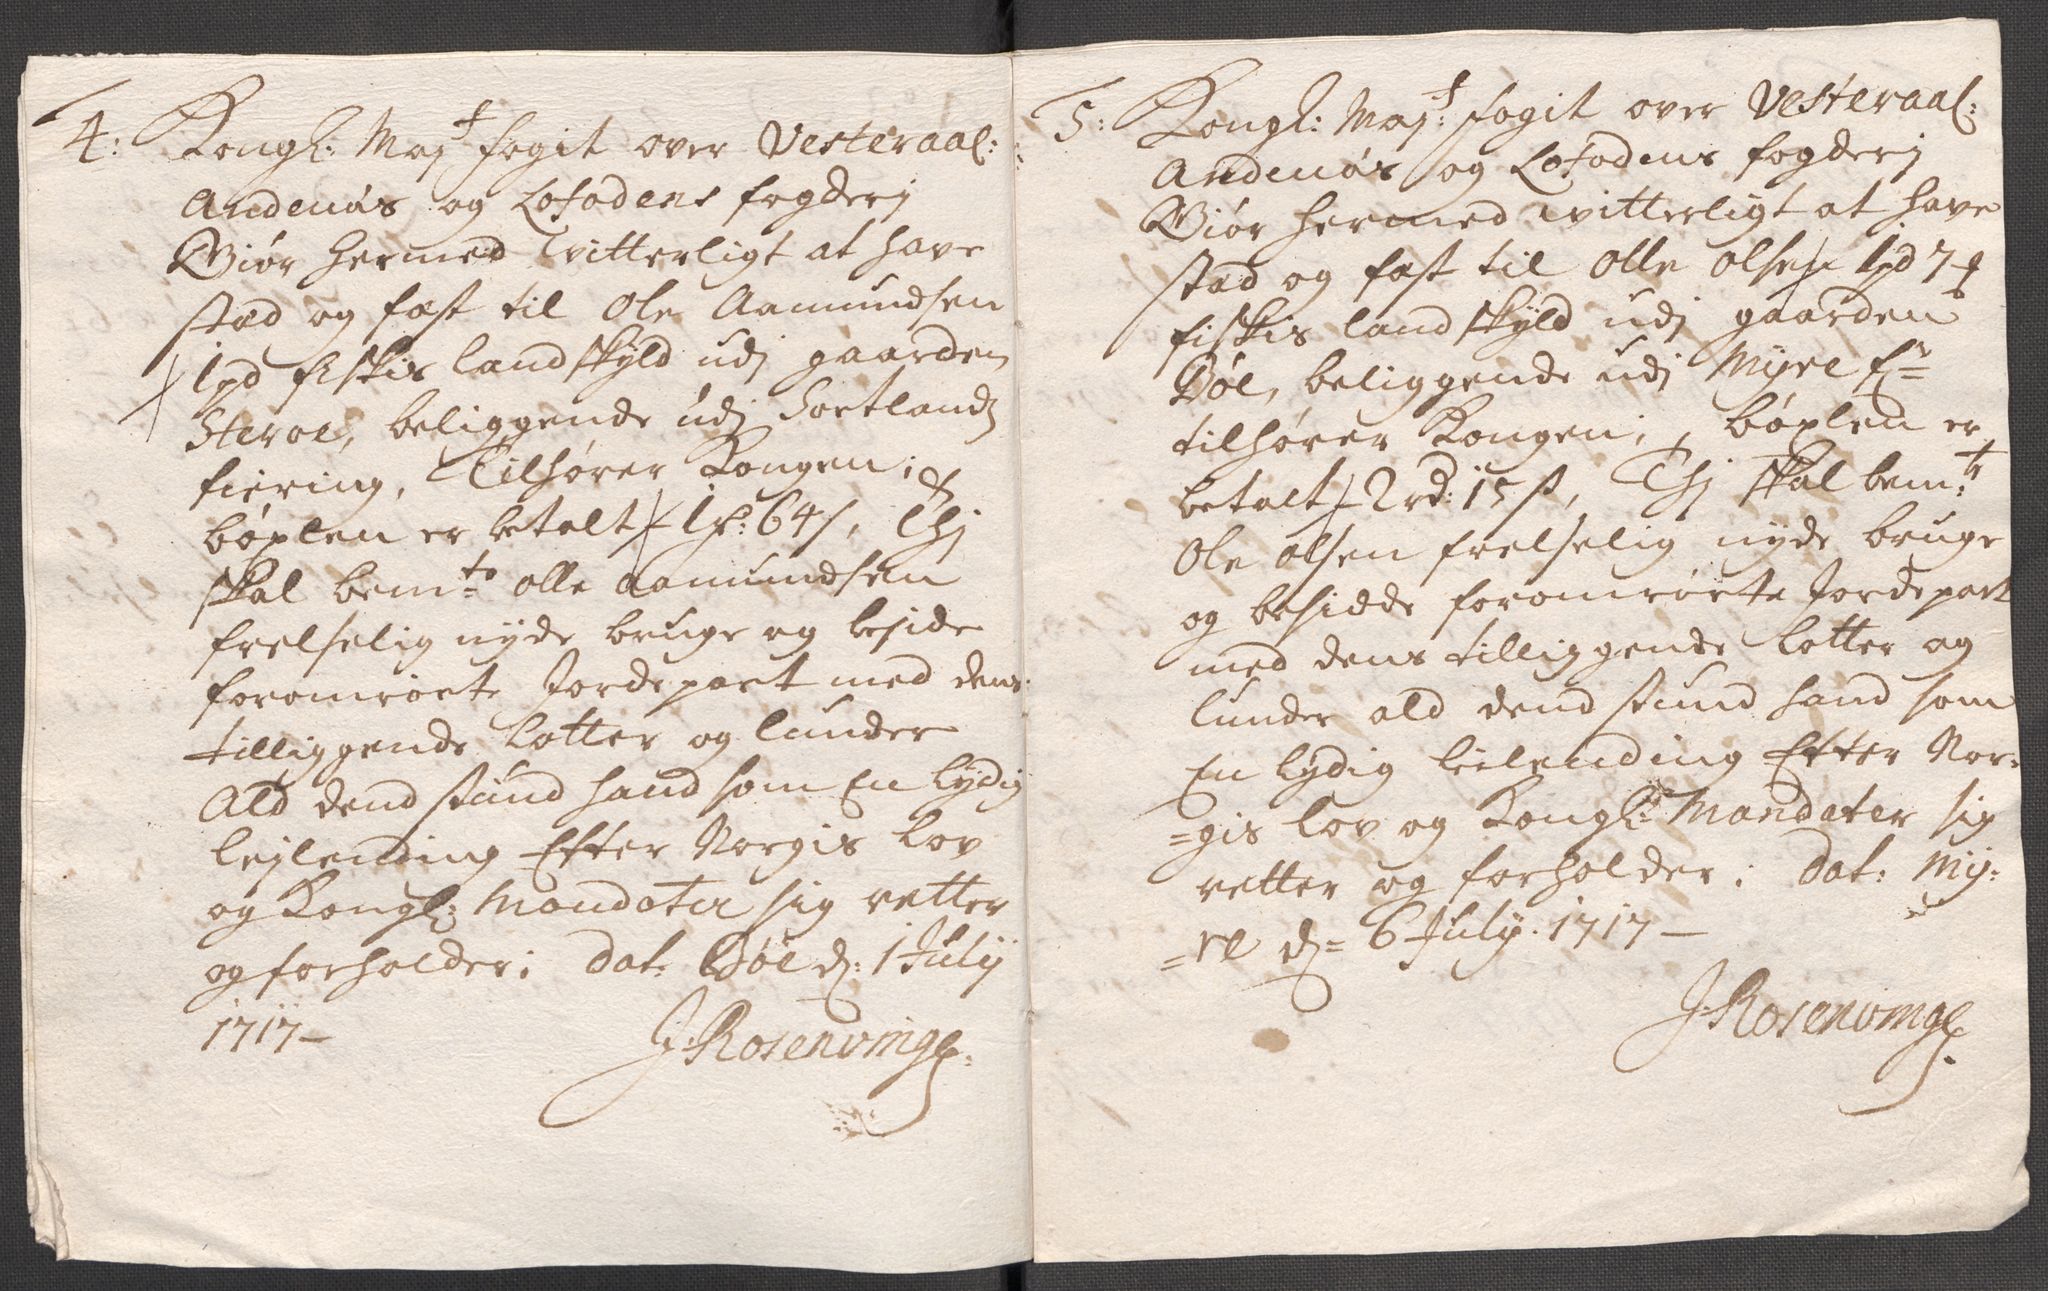 4: Kongl: Maj:t fogit over Vesteraal:
Andenøs og Lofodens fogderj
Giør hermed vitterligt at have
stæd og fæst til Ole Aamundsen
1 pd fiskis landskyld udj gaarden
Steroe, beliggende udj Sortlandz
fiering, Tilhører Kongen;
bøxlen er betalt / 1 64 s, Thj
skal bem:te olle Aamundsen
frelselig nyde bruge og beside
foromrørte Jordepart med dens
tilliggende Lotter og lunder
Ald dend stund hand som En Lydig
lejlending Efter Norgis Lov
og Kongl: Mandater sig retter
og forholder; Dat. Bøe d: 1 July
1717 –
J: Rosenvinge:
5: Kongl: Maj:t fogit over Vesteraal:
Andenøs og Lofodens fogderj
Giør hermed witterligt at have
stæd og fæst til Olle olsen 1 pd
fiskis landskyld udj gaarden
Bøe, beliggende udj Myre
tilhører Kongen; bøxlen er
betalt / 2 rd: 15 s, Thj skal bem:te
Ole olsen frelselig nyde bruge
og besidde foromrørte Jordepart
med dens tilliggende Lotter og
lunder ald dend stund hand som
En lydig leilending Efter Nor=
=gis Lov og Kongl: Mandater sig
retter og forholder; Dat: My:
=re d= 6 July. 1717 –
J: Rosenvinge